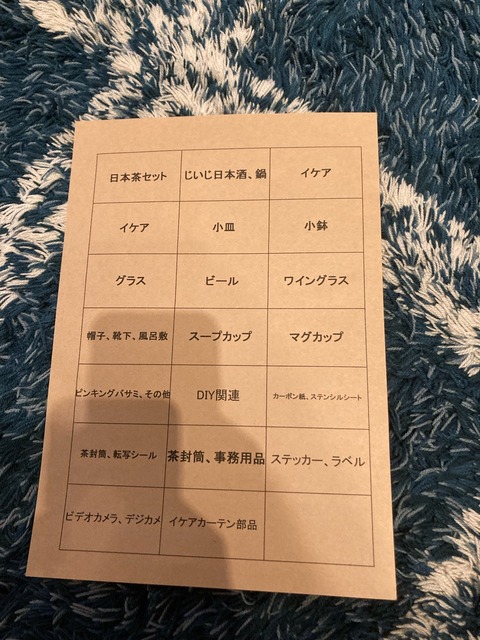 日本茶セット
じいじ日本酒、鍋
イケア
イケア
小皿
小鉢
グラス
ビール
ワイングラス
帽子、靴下、風呂敷
スープカップ
マグカップ
ピンキングバサミ、その他
DIY関連
カーボン紙、ステンシルシート
茶封筒、転写シール
茶封筒、事務用品
ステッカー、ラベル
ビデオカメラ、デジカメ
イケアカーテン部品